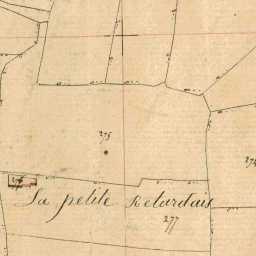 275
274
276
La petite Retardais
277